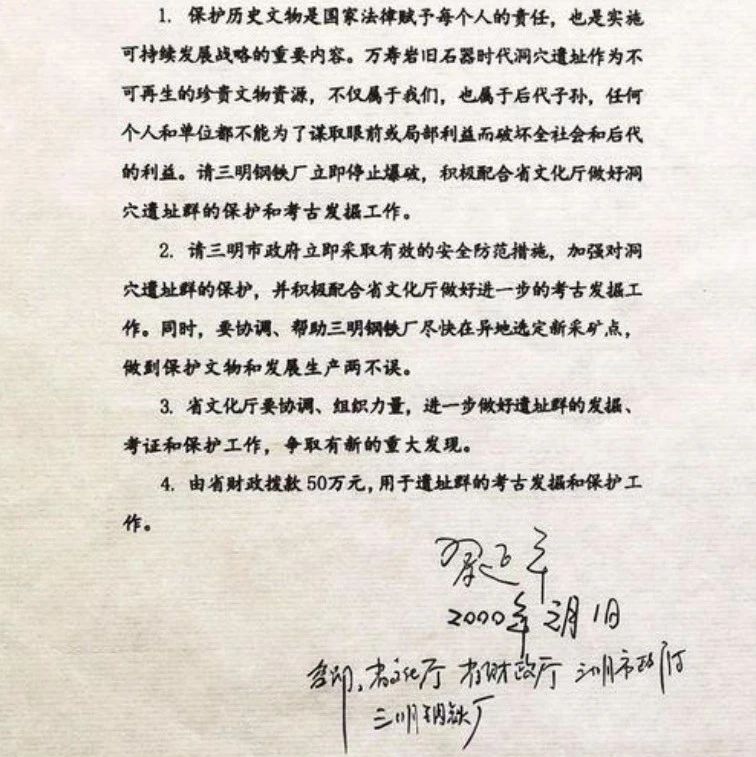 1. 保护历史文物是国家法律赋予每个人的责任，也是实施
可持续发展战略的重要内容。万寿岩旧石器时代洞穴遗址作为不
可再生的珍贵文物资源，不仅属于我们，也属于后代子孙，任何
个人和单位都不能为了谋取眼前或局部利益而破坏全社会和后代
的利益。请三明钢铁厂立即停止爆破，积极配合省文化厅做好洞
穴遗址群的保护和考古发掘工作。
2. 请三明市政府立即采取有效的安全防范措施，加强对洞
穴遗址群的保护，并积极配合省文化厅做好进一步的考古发掘工
作。同时，要协调、帮助三明钢铁厂尽快在异地选定新采矿点，
做到保护文物和发展生产两不误。
3. 省文化厅要协调、组织力量，进一步做好遗址群的发掘、
考证和保护工作，争取有新的重大发现。
4. 由省财政拨款50万元，用于遗址群的考古发掘和保护工
作。
2000年 月1日
省文化厅 省财政厅 三明市政府
三明钢铁厂